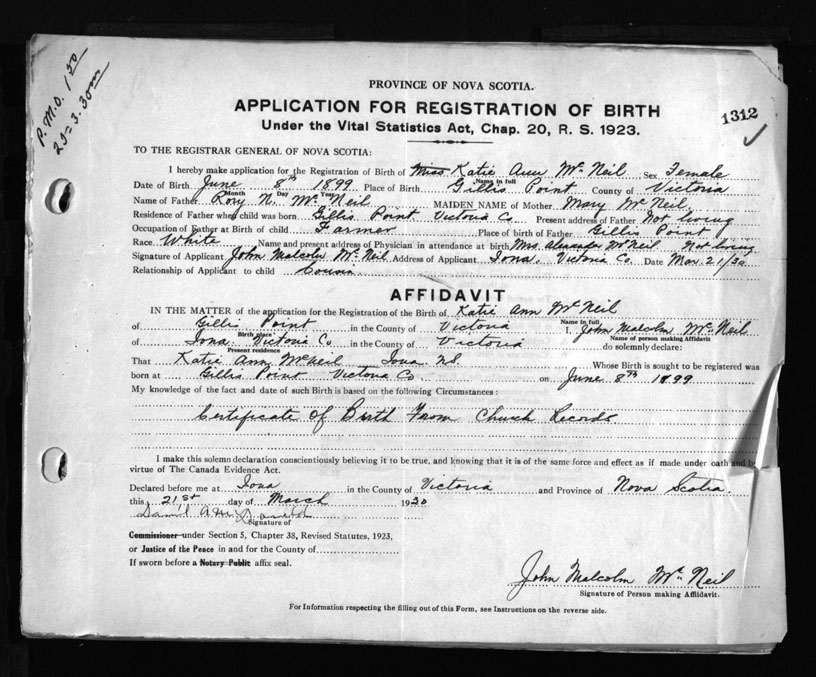 P.M.O. 1 50
23 = 3.30 pm
PROVINCE OF NOVA SCOTIA.
APPLICATION FOR REGISTRATION OF BIRTH
Under the Vital Statistics Act, Chap. 20, R. S. 1923.
1312
TO THE REGISTRAR GENERAL OF NOVA SCOTIA:
I hereby make application for the Registration of Birth of Miss Katie Ann McNeil Sex Female
Name in full
Date of Birth June 8th 1899 Place of Birth Gillis Point County of Victoria
Month Day Year
Name of Father Rory N. McNeil MAIDEN NAME of Mother Mary McNeil
Residence of Father when child was born Gillis Point Victoria Co. Present address of Father Not living
Occupation of Father at Birth of child Farmer Place of birth of Father Gillis Point
Race White Name and present address of Physician in attendance at birth Mrs. Alexander McNeil. Not living
Signature of Applicant John Malcolm McNeil Address of Applicant Iona, Victoria Co. Date Mar. 21/30
Relationship of Applicant to child Cousin
AFFIDAVIT
IN THE MATTER of the application for the Registration of the Birth of Katie Ann McNeil
Name in full
of Gillis Point in the County of Victoria I, John Malcolm McNeil
Birth place Name of person making Affidavit
of Iona Victoria Co in the County of Victoria do solemnly declare:
Present residence
That Katie Ann McNeil Iona NS Whose Birth is sought to be registered was
born at Gillis Point Victoria Co. on June 8th 1899
My knowledge of the fact and date of such Birth is based on the following Circumstances:
Certificate of Birth From Church Records
I make this solemn declaration conscientiously believing it to be true, and knowing that it is of the same force and effect as if made under oath and by
virtue of The Canada Evidence Act.
Declared before me at Iona in the County of Victoria and Province of Nova Scotia.
this 21st day of March 1930
Signature of
Commissioner under Section 5, Chapter 38, Revised Statutes, 1923,
or Justice of the Peace in and for the County of
If sworn before a Notary Public affix seal.
John Malcolm McNeil
Signature of Person making Affidavit.
For Information respecting the filling out of this Form, see Instructions on the reverse side.